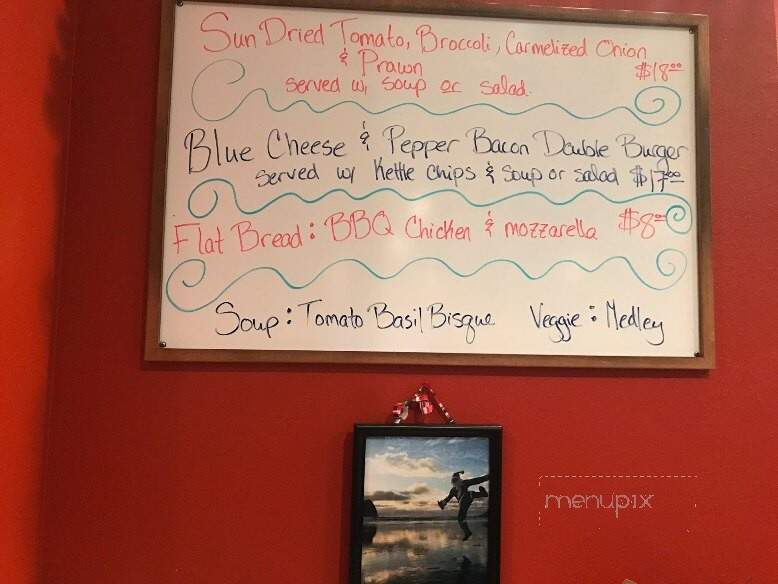 Sun Dried Tomato, Broccoli, Carmelized Onion
& Prawn $18.00
served w/ soup or salad.
Blue Cheese & Pepper Bacon Double Burger
served w/ Kettle chips & soup or salad $17.00
Flat Bread: BBQ Chicken & mozzarella $8.00
Soup: Tomato Basil Bisque Veggie: Medley
menupix